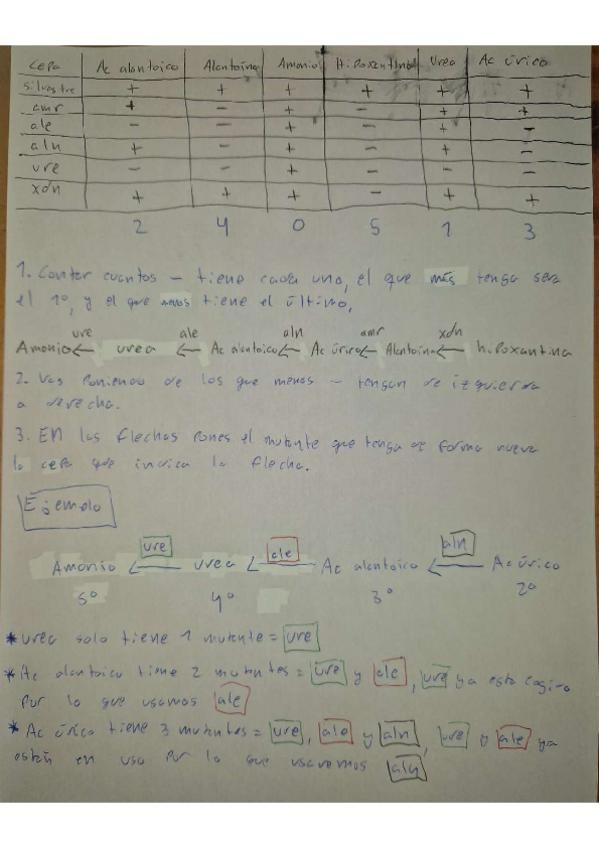 Cepa Ac alantoico Alantoína Amonio Hipoxantina Urea Ac úrico
silvestre + + + + + +
amr + - + - + +
ale - - + - + -
aln + - + - + -
ure - - + - - -
xdn + + + - + +
2 4 0 5 1 3
1. Contar cuantos - tiene cada uno, el que más tenga sera
el 1º, y el que menos tiene el último.
ure ale aln amr xdn
Amonio ← urea ← Ac alantoico ← Ac úrico ← Alantoína ← hipoxantina
2. Vas poniendo de los que menos - tengan de izquierda
a derecha.
3. EN las flechas pones el mutante que tenga de forma nueva
la cepa que indica la flecha.
Ejemplo
ure ale aln
Amonio ← urea ← Ac alantoico ← Ac úrico
5º 4º 3º 2º
* urea solo tiene 1 mutante = ure
* Ac alantoico tiene 2 mutantes = ure y ale, ure ya esta cogido
por lo que usamos ale
* Ac úrico tiene 3 mutantes = ure, ale y aln, ure y ale ya
están en uso por lo que usaremos aln